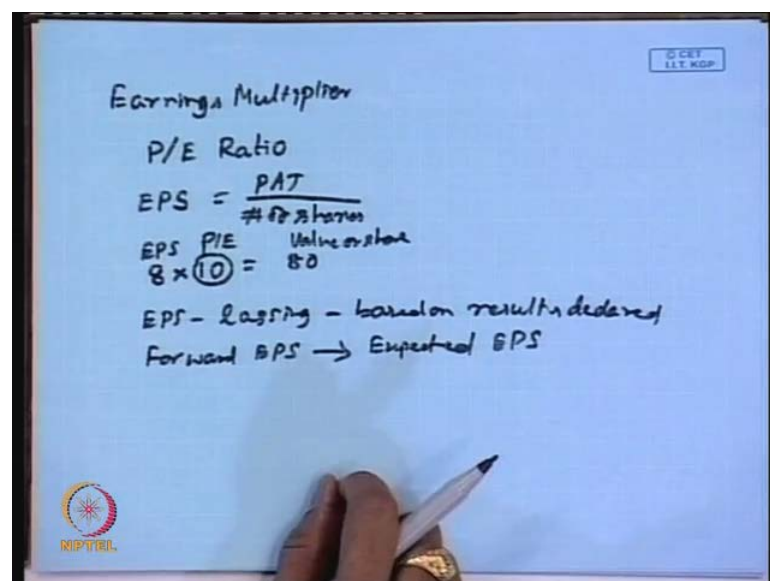 © CET
I.I.T. KGP
Earnings Multiplier
P/E Ratio
EPS = PAT
# of shares
EPS P/E Value of share
8 × 10 = 80
EPS - Lagging - based on results declared
Forward EPS → Expected EPS
NPTEL